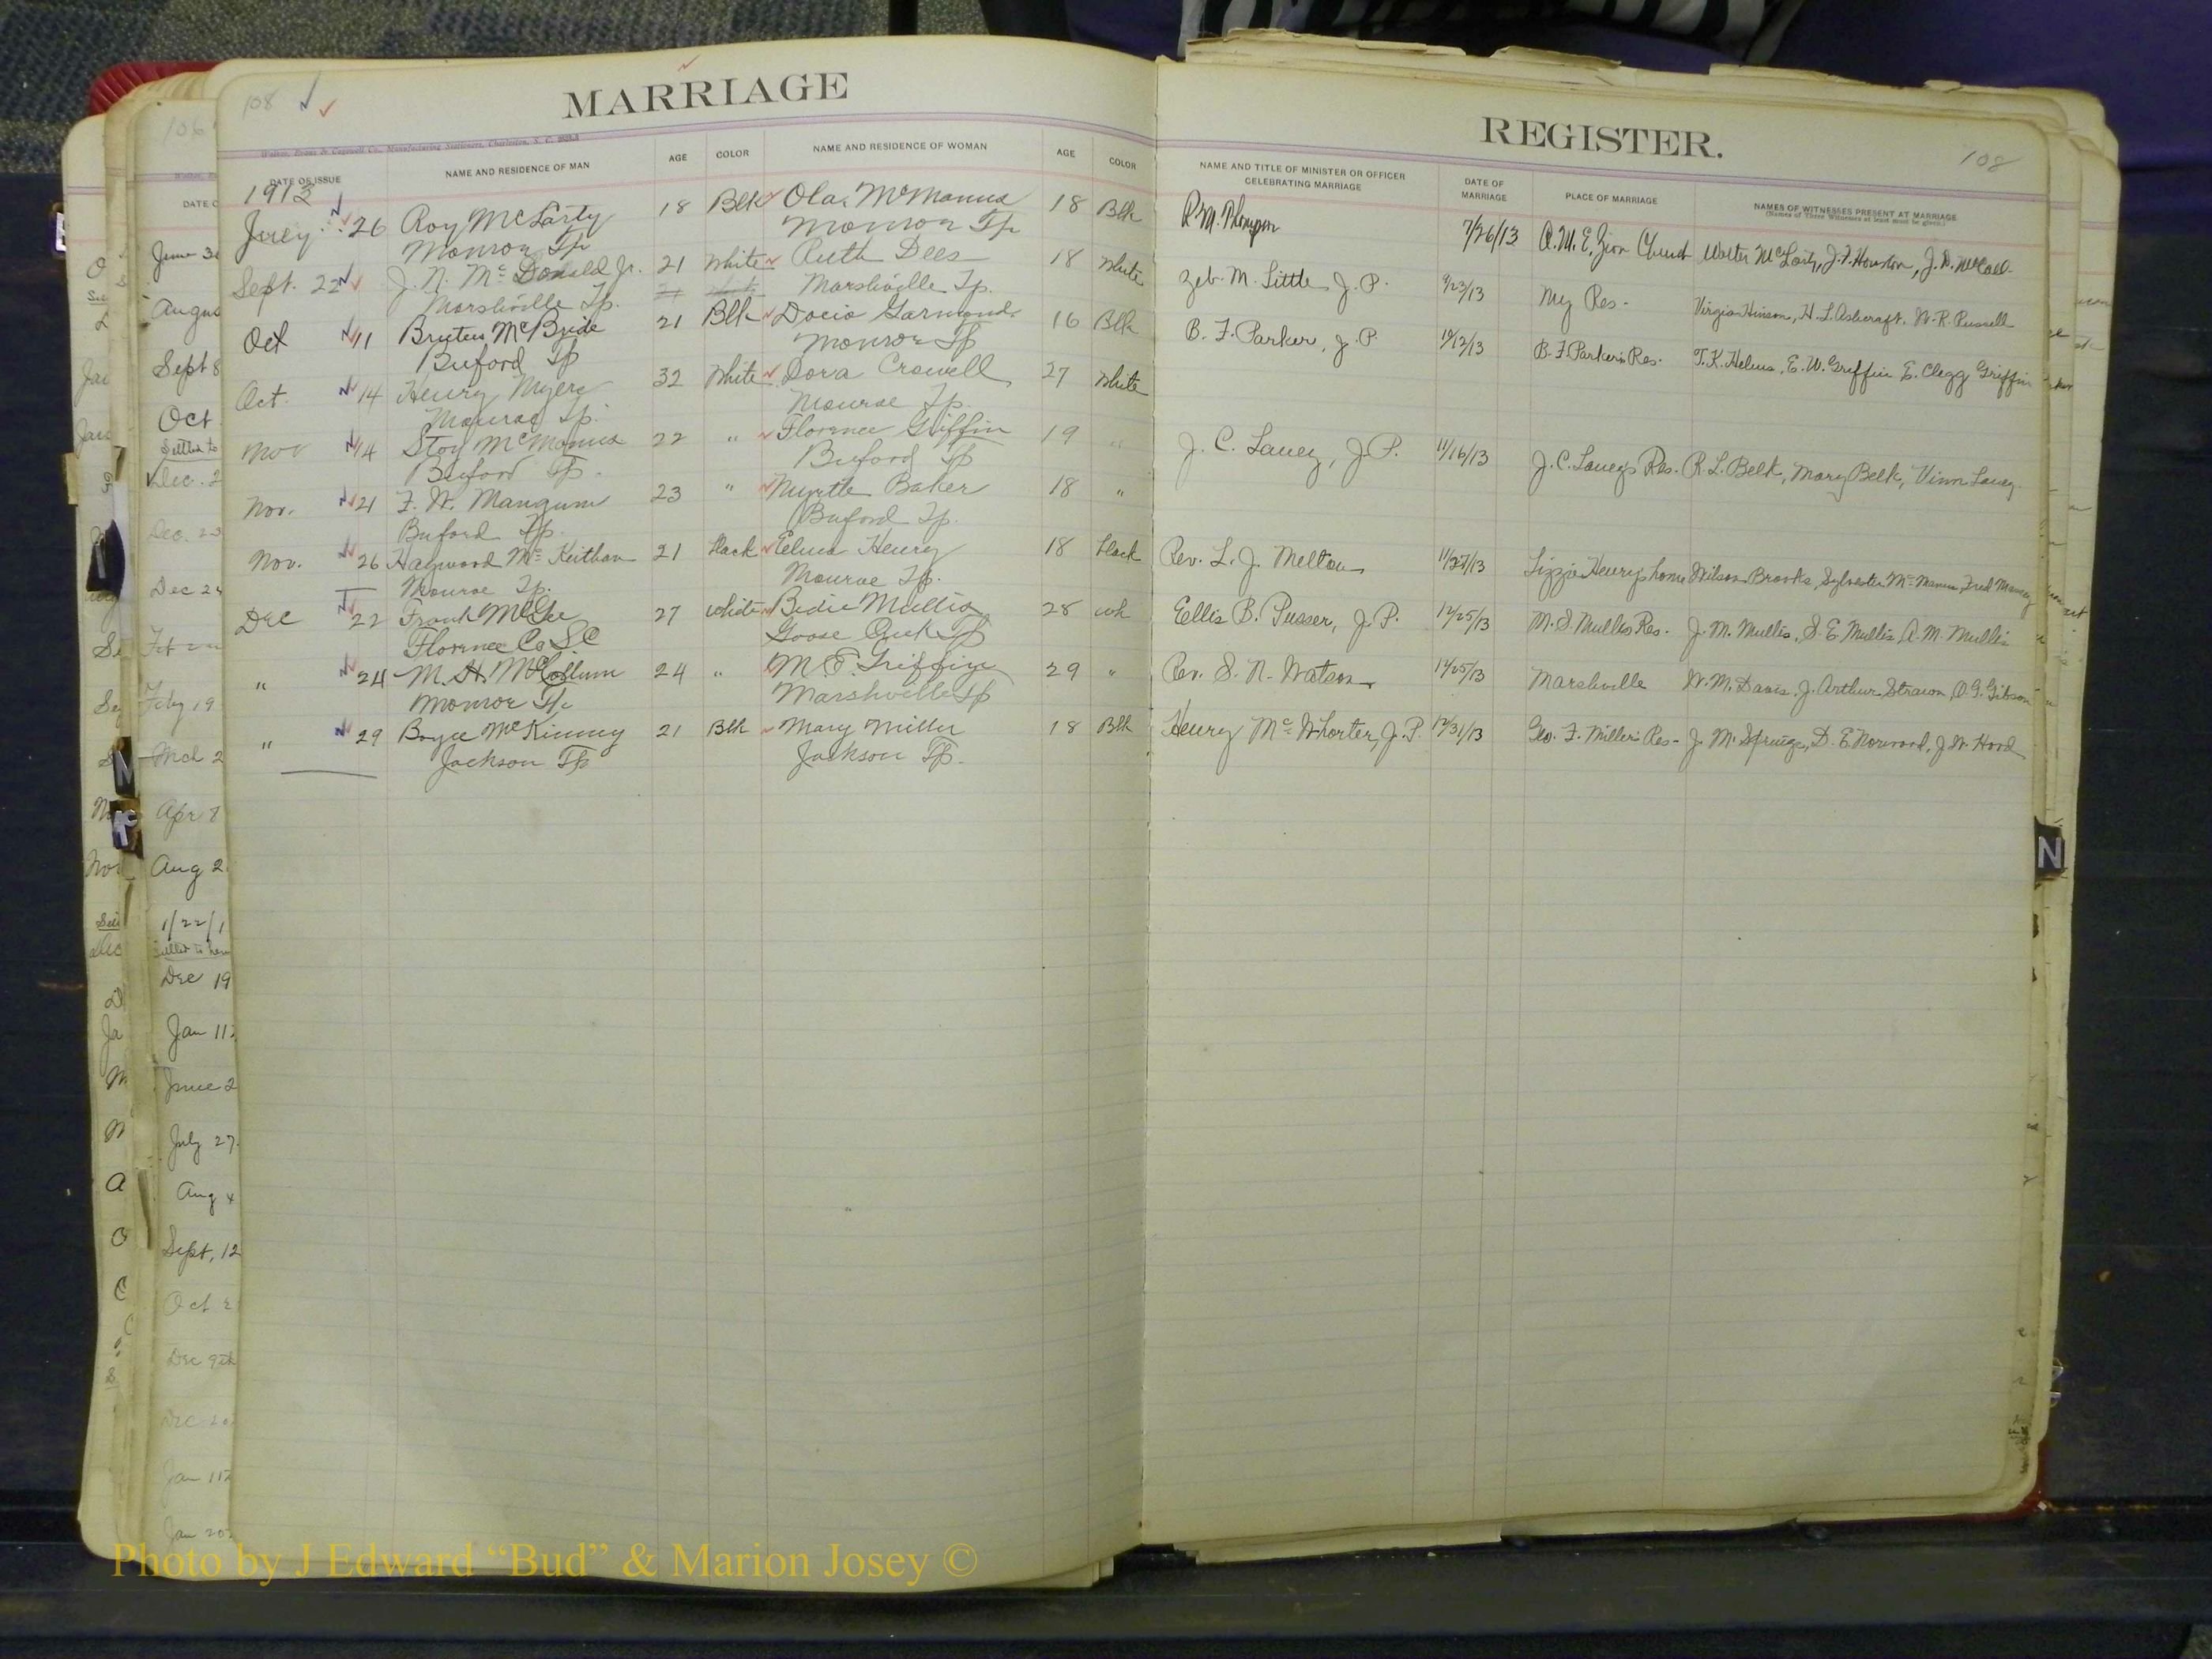 108
MARRIAGE
DATE OF ISSUE NAME AND RESIDENCE OF MAN AGE COLOR NAME AND RESIDENCE OF WOMAN AGE COLOR
1913
July 26 Roy McLarty 18 Blk Ola McManus 18 Blk
Monroe Tp Monroe Tp
Sept. 22 J. N. McDonald Jr. 21 White Ruth Dees 18 White
Marshville Tp. Marshville Tp.
Oct 11 Brutus McBride 21 Blk Docia Garmond 16 Blk
Buford Tp Monroe Tp
Oct. 14 Henry Myers 32 White Dora Crowell 27 White
Monroe Tp. Monroe Tp.
Nov 14 Stoy McManus 22 " Florence Griffin 19 "
Buford Tp. Buford Tp
Nov. 21 F. W. Mangum 23 " Myrtle Baker 18 "
Buford Tp. Buford Tp.
Nov. 26 Haywood McKeithan 21 black Henry 18 black
Monroe Tp. Monroe Tp.
Dec 22 Frank McGee 27 White Bedie Mullis 28 wh
Florence Co S C Goose Creek Tp
" 24 M. H. McCollum 24 " M. E. Griffin 29 "
Monroe Tp Marshville Tp
" 29 Boyce McKinney 21 Blk Mary Miller 18 Blk
Jackson Tp Jackson Tp.
REGISTER.
108
NAME AND TITLE OF MINISTER OR OFFICER CELEBRATING MARRIAGE DATE OF MARRIAGE PLACE OF MARRIAGE NAMES OF WITNESSES PRESENT AT MARRIAGE
(Names of Three Witnesses at least must be given.)
7/26/13 A. M. E. Zion Church Walter McLarty, J. F. Houston, J. D. McCall
Zeb. M. Little, J. P. 9/23/13 My Res. Virgia Hinson, H. L. Ashcraft, W. R. Russell
B. F. Parker, J. P. 10/12/13 B. F. Parker's Res. T. K. Helms, E. W. Griffin E. Clegg Griffin
J. C. Laney, J. P. 11/16/13 J. C. Laney's Res. R. L. Belk, Mary Belk, Laney
Rev. L. J. Melton 11/27/13 Lizzie Henry's home Wilson Brooks, Sylvester McManus, Fred Massey
Ellis B. Pusser, J. P. 12/25/13 M. S. Mullis Res. J. M. Mullis, S. E. Mullis A. M. Mullis
Rev. S. N. Watson 12/25/13 Marshville W. M. Davis, J. Arthur Strawn, O. G. Gibson
Henry McWhorter, J. P. 12/31/13 Geo. F. Miller's Res- D. E. Norwood, J. W. Hood
June 30
Sept 8
Oct
Dec. 2
Dec. 23
Dec 24
Feby 19
Mch 2
Apr 8
Aug 2
1/22/1
Dec 19
Jan 11
June 2
July 27
Aug 4
Sept, 12
Oct 2
Dec 9th
N
Mc
N
Photo by J Edward “Bud” & Marion Josey ©